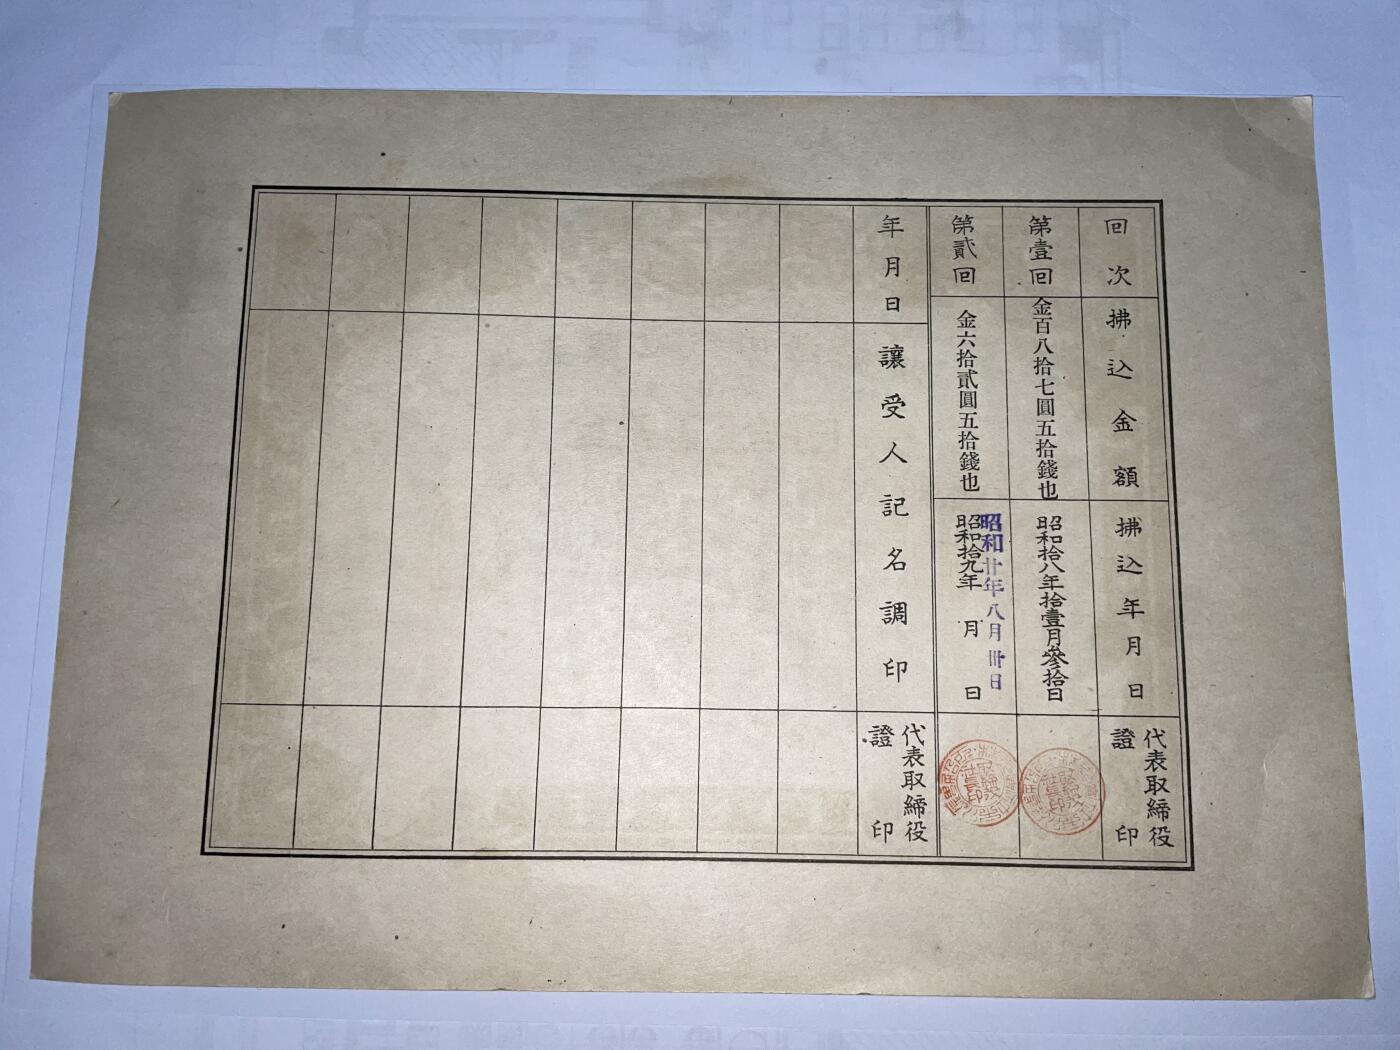 回次
拂込金額
拂込年月日
代表取締役
證印
第壹回
金百八拾七圓五拾錢也
昭和拾八年拾壹月參拾日
第貳回
金六拾貳圓五拾錢也
昭和廿年八月卅日
昭和拾九年 月 日
年月日
讓受人記名調印
代表取締役
證印